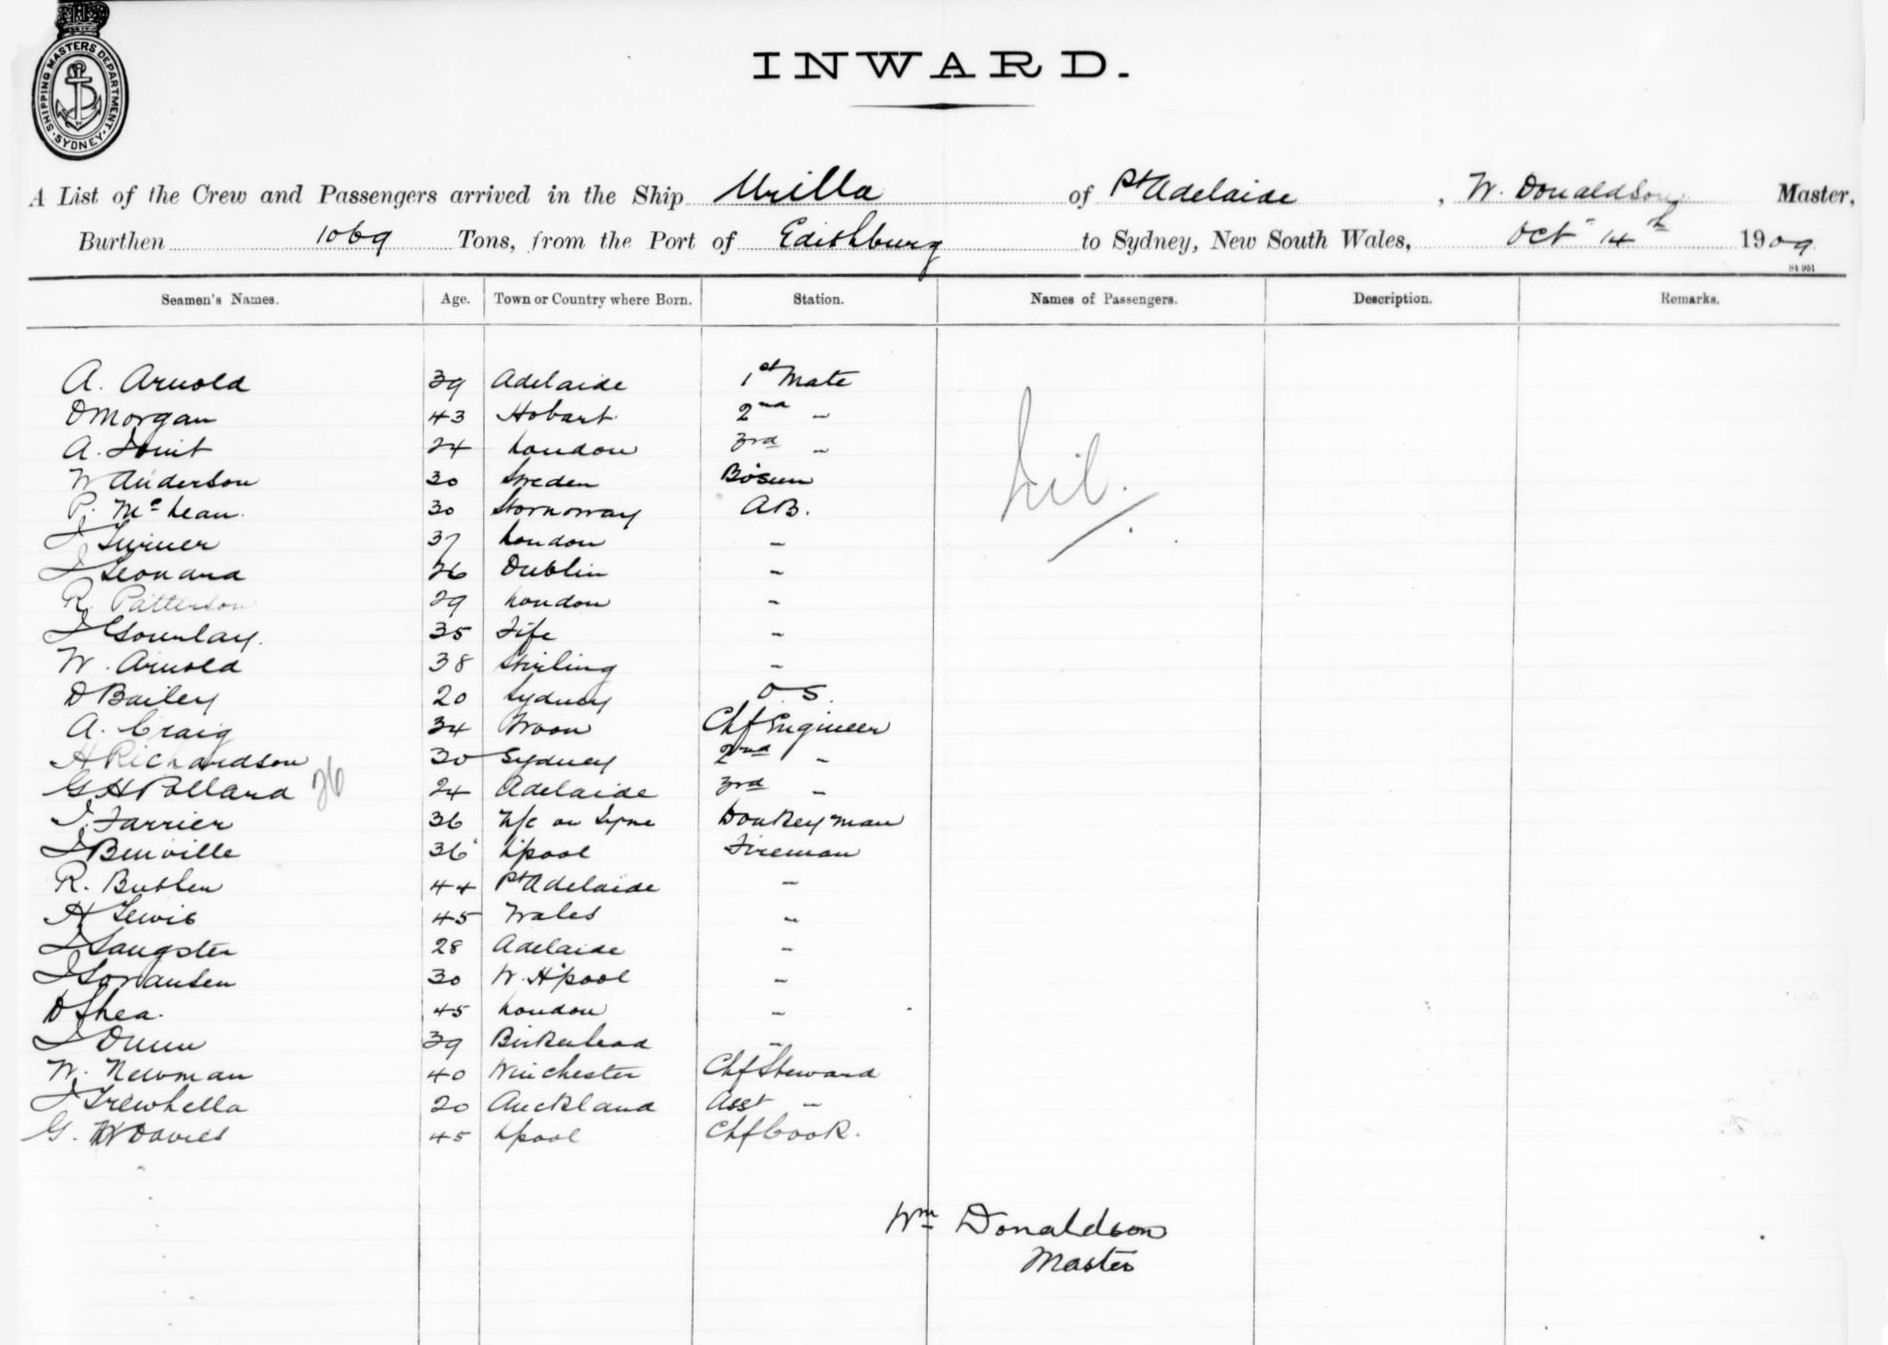 SHIPPING MASTERS DEPARTMENT
SYDNEY
INWARD.
A List of the Crew and Passengers arrived in the Ship Urilla of Pt Adelaide, W. Donaldson Master,
Burthen 1069 Tons, from the Port of Edithburg to Sydney, New South Wales, Oct 14th 1909
Seamen's Names. Age. Town or Country where Born. Station. Names of Passengers. Description. Remarks.
A. Arnold 39 Adelaide 1st Mate
D Morgan 43 Hobart 2nd "
A. 24 London 3rd "
W Anderson 30 Sweden Bosun
P. McLean. 30 Stornoway AB.
J Turner 37 London "
J Leonard 26 Dublin "
R. Patterson 29 London "
J Gourlay. 35 Fife "
W. Arnold 38 Stirling "
D Bailey 20 Sydney O.S.
A. Craig 34 Troon Chf Engineer
H Richardson 30 Sydney 2nd "
G H Pollard 26 24 Adelaide 3rd "
J. Farrier 36 N/c on Tyne Donkeyman
J 36 L'pool Fireman
R. Butler 44 Pt Adelaide "
H Lewis 45 Wales "
J Sangster 28 Adelaide "
J Soransen 30 W. H'pool "
D Shea. 45 London "
J Dunn 39 Birkenhead "
W. Newman 40 Winchester Chf Steward
J Trewhella 20 Auckland Asst "
G. W Davies 45 L'pool Chf Cook.
Nil.
Wm Donaldson
Master